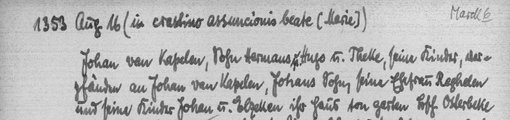 1353 Aug 16 (in crastino assumcionis beate [Marie]) March 6
Johan van Kapelen, Sohn Hermans, Hugo u. Thelke, seine Kinder, ver-
pfänden an Johan van Kapelen, Johans Sohn, seine Ehefrau Regheken
und seine Kinder Johan u. Elzeken ihr Haus son garten Osterbeke